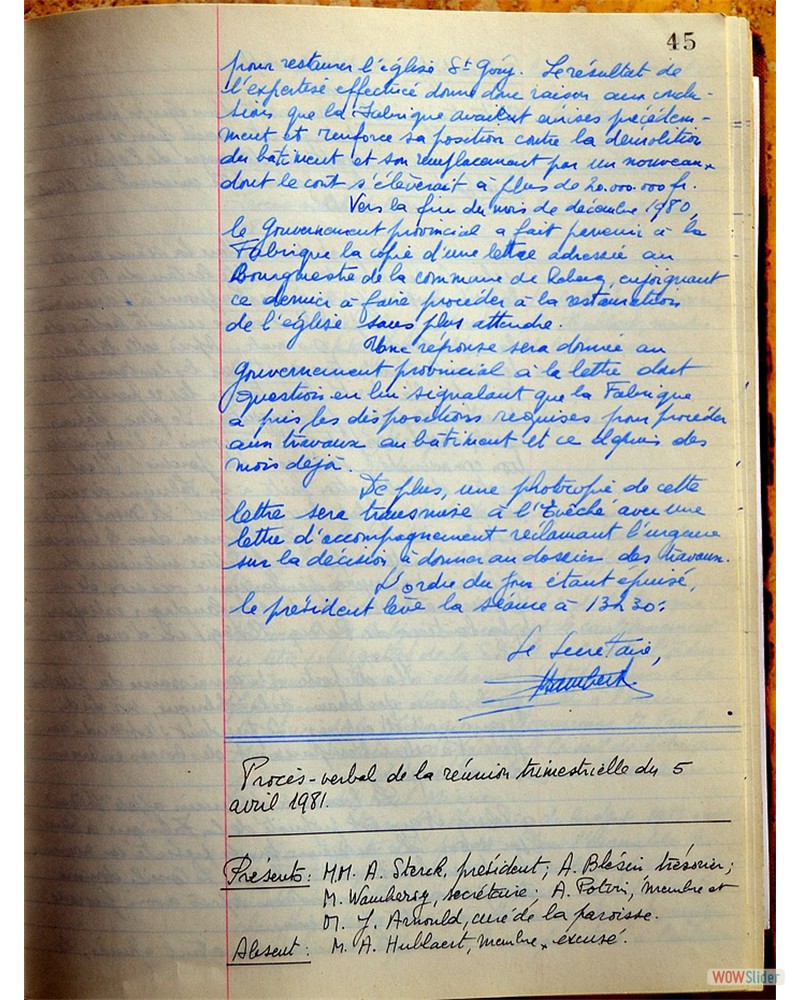 45
pour restaurer l'église St Géry. Le résultat de
l'expertise effectuée donne donc raison aux conclu-
sions que la Fabrique avait émises précédem-
ment et renforce sa position contre la démolition
du bâtiment et son remplacement par un nouveau
dont le coût s'élèverait à plus de 20.000.000 fr.
Vers la fin du mois de décembre 1980,
le Gouvernement provincial a fait parvenir à la
Fabrique la copie d'une lettre adressée au
Bourgmestre de la commune de Rebecq, enjoignant
ce dernier à faire procéder à la restauration
de l'église sans plus attendre.
Une réponse sera donnée au
Gouvernement provincial à la lettre dont
question en lui signalant que la Fabrique
a pris les dispositions requises pour procéder
aux travaux au bâtiment et ce depuis des
mois déjà.
De plus, une photocopie de cette
lettre sera transmise à l'Evêché avec une
lettre d'accompagnement réclamant l'urgence
sur la décision à donner au dossier des travaux.
L'ordre du jour étant épuisé,
le président lève la séance à 13h30.
Le Secrétaire,
Procès-verbal de la réunion trimestrielle du 5
avril 1981.
Présents: MM. A. Sterck, président; A. Blésin, trésorier;
M. secrétaire; A. Potvin, membre et
M. J. Arnould, curé de la paroisse.
Absent: M. A. Hublaert, membre, excusé.
WOWSlider